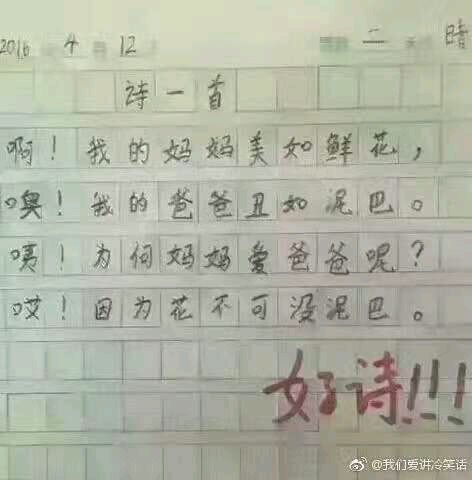 2016 4 12 二 晴
诗一首
啊！我的妈妈美如鲜花，
噢！我的爸爸丑如泥巴。
咦！为何妈妈爱爸爸呢？
哎！因为花不可没泥巴。
好诗!!!
@我们爱讲冷笑话